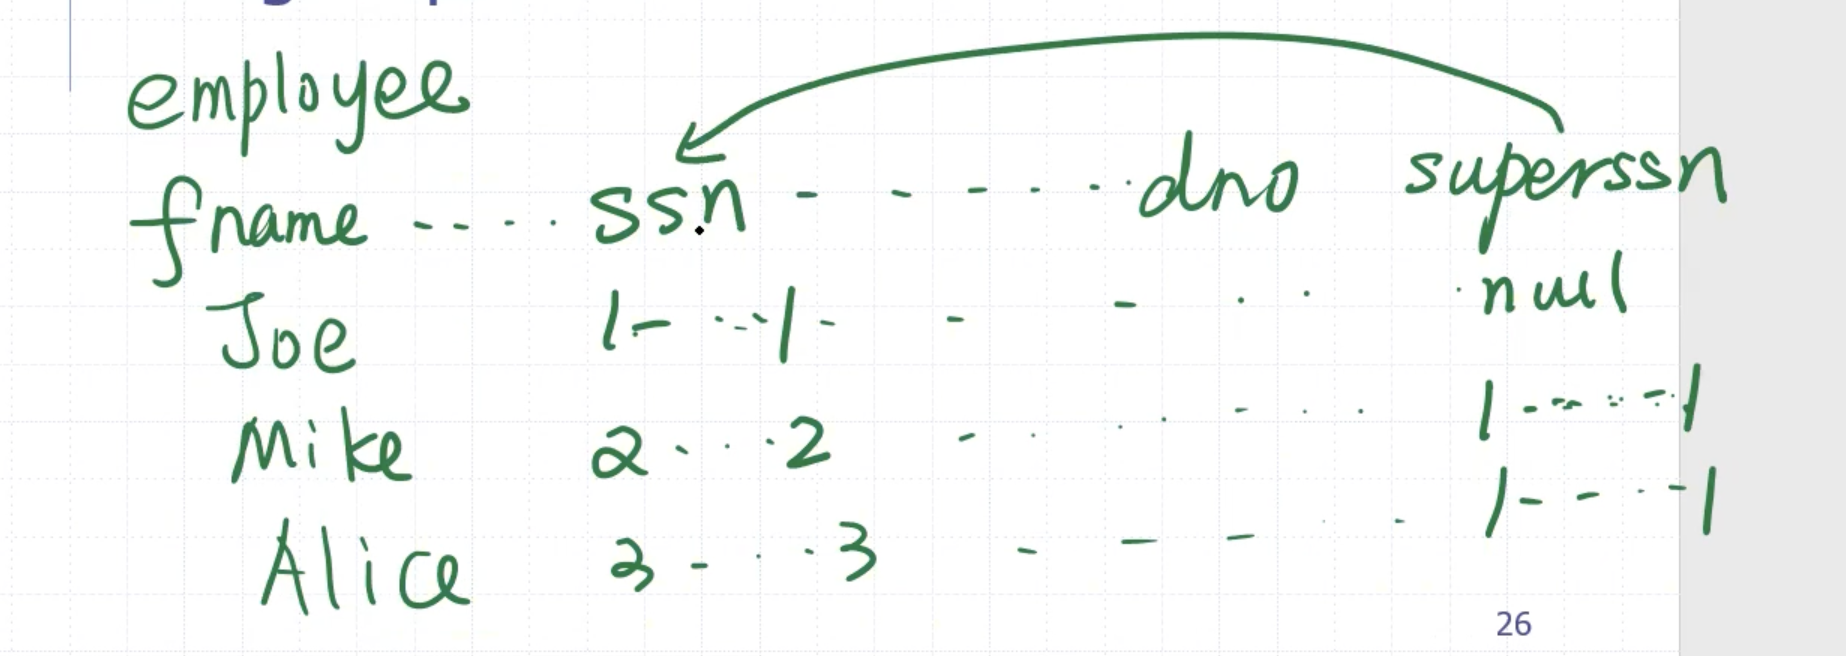 employee
fname ---- ssn - - - - - dno superssn
Joe 1- ---1- - - . . null
Mike 2 - . . 2 - . . . - . . 1-----1
Alice 3 - . . 3 - - - . - 1----1
26